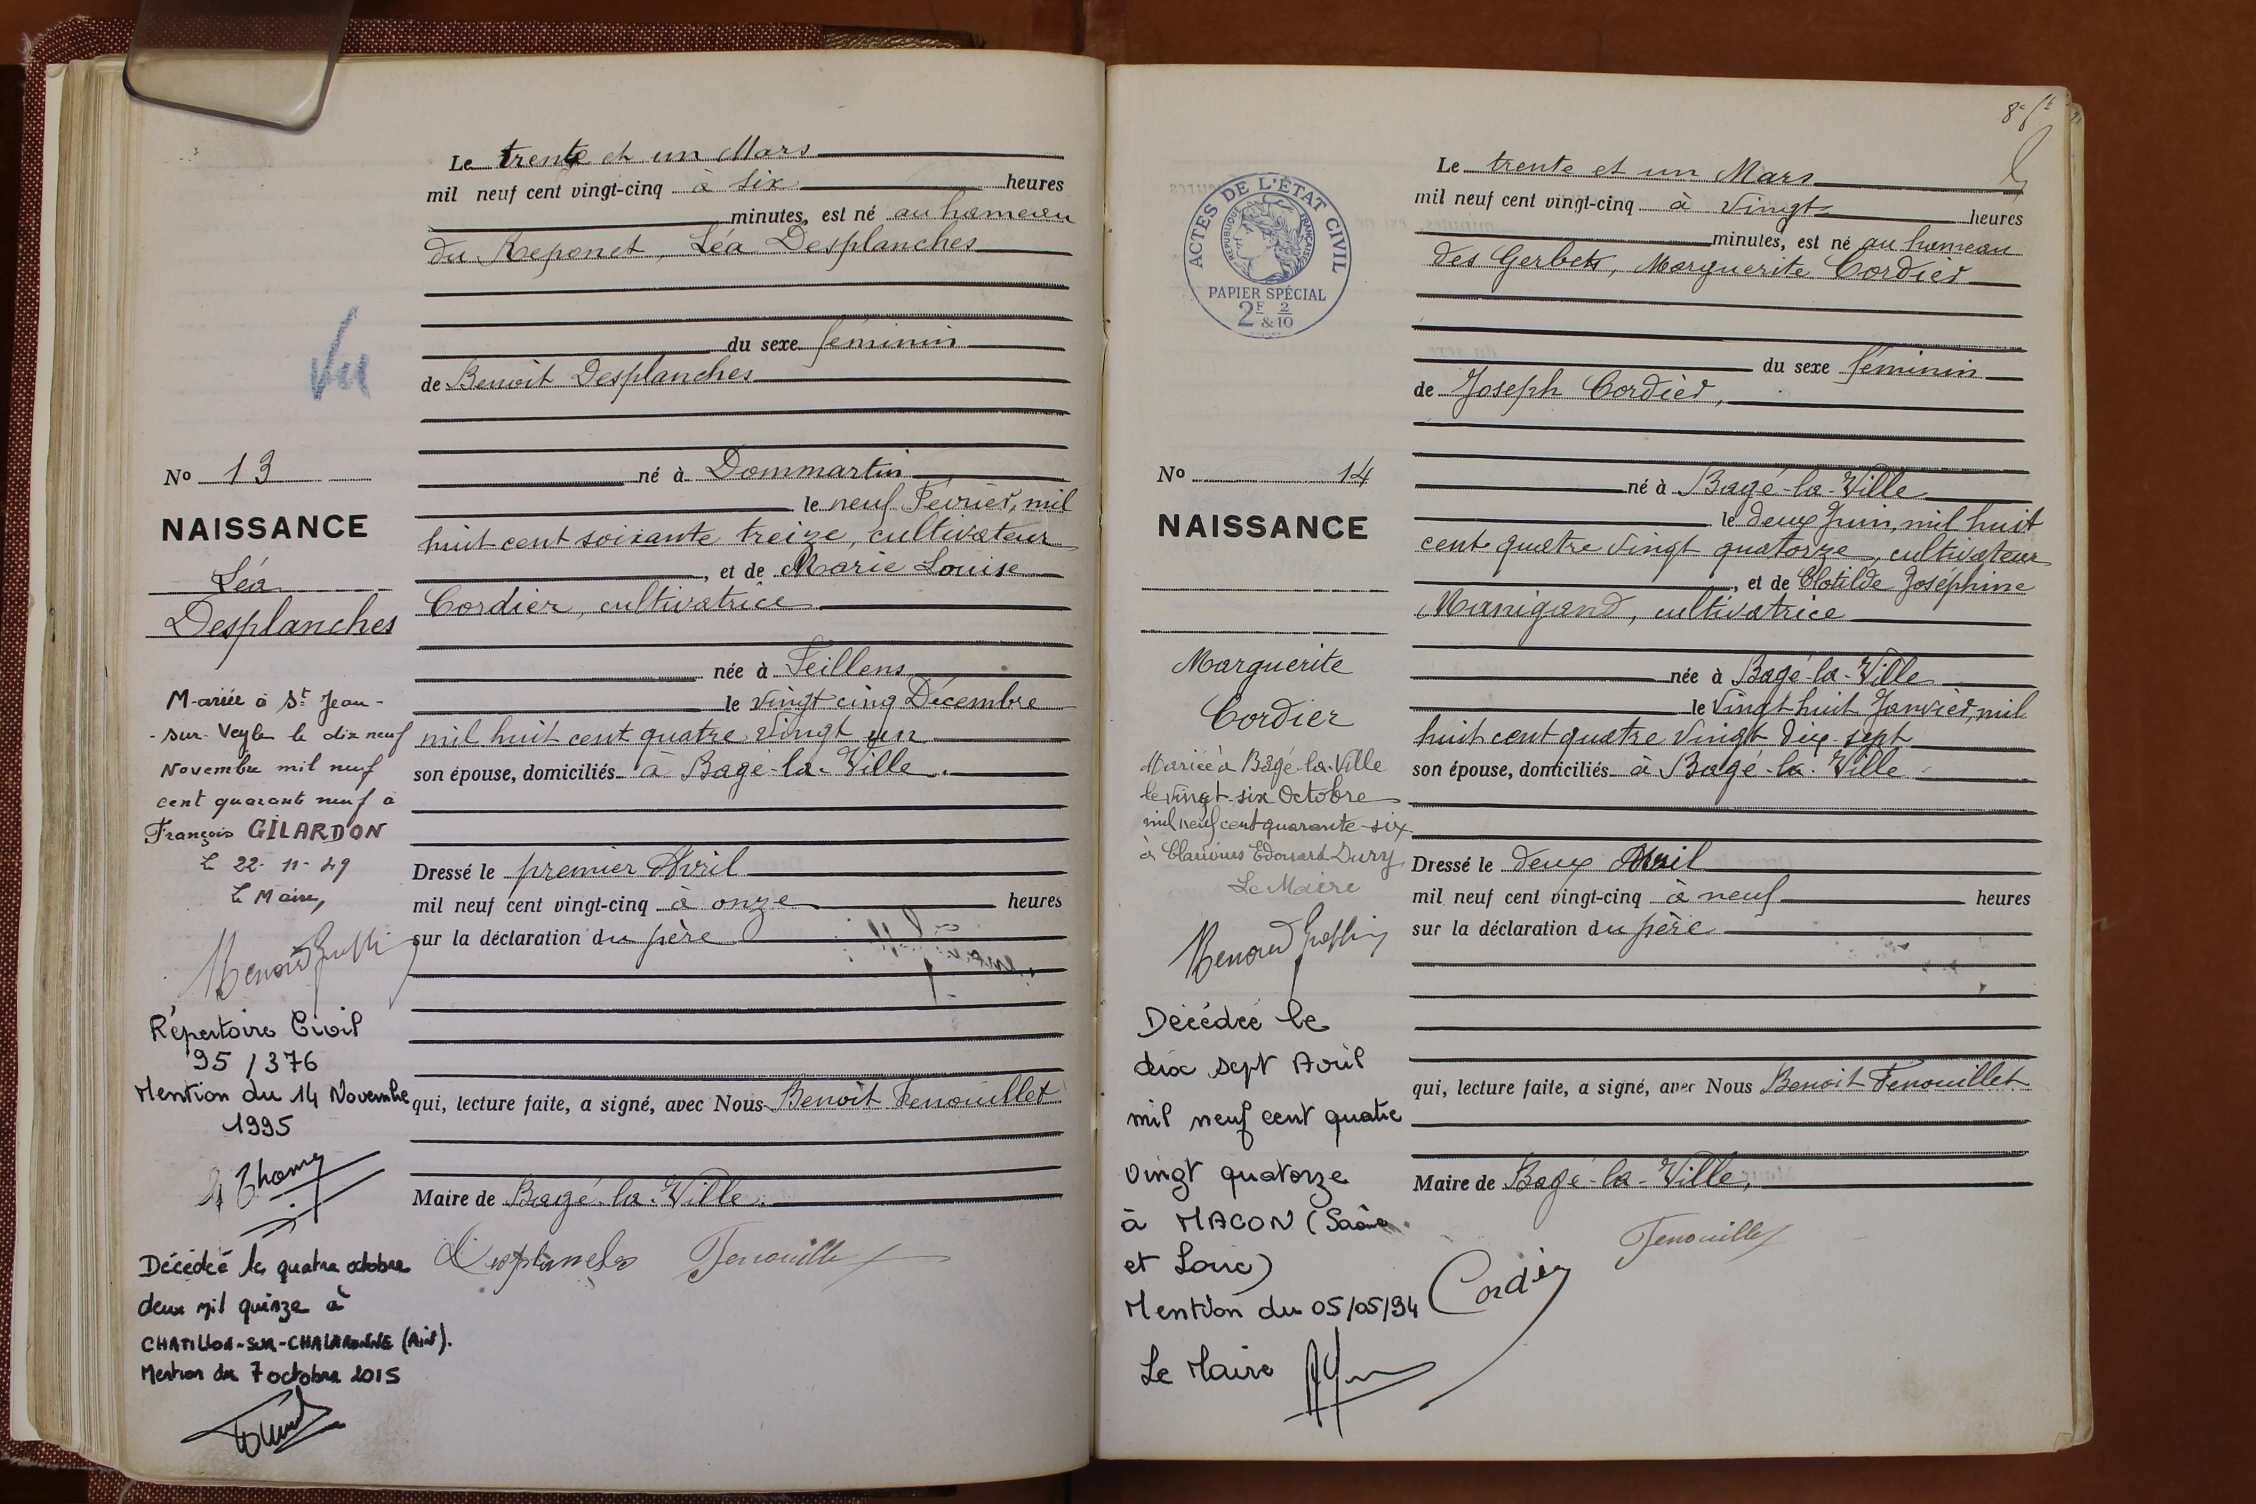 Le trente et un Mars
mil neuf cent vingt-cinq à six heures
minutes, est né au hameau
du Reponet, Léa Desplanches
du sexe féminin
de Benoit Desplanches
né à Dommartin
le neuf Février, mil
huit cent soixante treize, cultivateur
, et de Marie Louise
Cordier, cultivatrice
née à Feillens
le vingt cinq Décembre
mil huit cent quatre vingt un
son épouse, domiciliés à Bagé-la-Ville.
Dressé le premier Avril
mil neuf cent vingt-cinq à onze heures
sur la déclaration du père
qui, lecture faite, a signé, avec Nous Benoit Fenouillet
Maire de Bagé-la-Ville.
Desplanches Fenouillet
Vu
No 13
NAISSANCE
Léa
Desplanches
Mariée à St Jean-
-sur-Veyle le dix neuf
Novembre mil neuf
cent quarante neuf à
François GILARDON
Le 22-11-49
Le Maire,
Répertoire Civil
95 / 376
Mention du 14 Novembre
1995
Décédée le quatre octobre
deux mil quinze à
CHATILLON-SUR-CHALARONNE (Ain).
Mention du 7 octobre 2015
ACTES DE L'ÉTAT CIVIL
RÉPUBLIQUE FRANÇAISE
PAPIER SPÉCIAL
2F & 2/10
No 14
NAISSANCE
Marguerite
Cordier
Mariée à Bagé-la-Ville
le vingt-six Octobre
mil neuf cent quarante-six
à Claudius Edouard Dury
Le Maire
Décédée le
dix sept Avril
mil neuf cent quatre
vingt quatorze
à MACON (Saône
et Loire)
Mention du 05/05/94
Le Maire
Le trente et un Mars
mil neuf cent vingt-cinq à vingt heures
minutes, est né au hameau
des Gerbets, Marguerite Cordier
du sexe féminin
de Joseph Cordier,
né à Bagé-la-Ville
le deux Juin, mil huit
cent quatre vingt quatorze, cultivateur
, et de Clotilde Joséphine
Manigand, cultivatrice
née à Bagé-la-Ville
le vingt huit Janvier, mil
huit cent quatre vingt dix-sept
son épouse, domiciliés à Bagé-la-Ville
Dressé le deux Avril
mil neuf cent vingt-cinq à neuf heures
sur la déclaration du père
qui, lecture faite, a signé, avec Nous Benoit Fenouillet
Maire de Bagé-la-Ville,
Fenouillet
Cordier